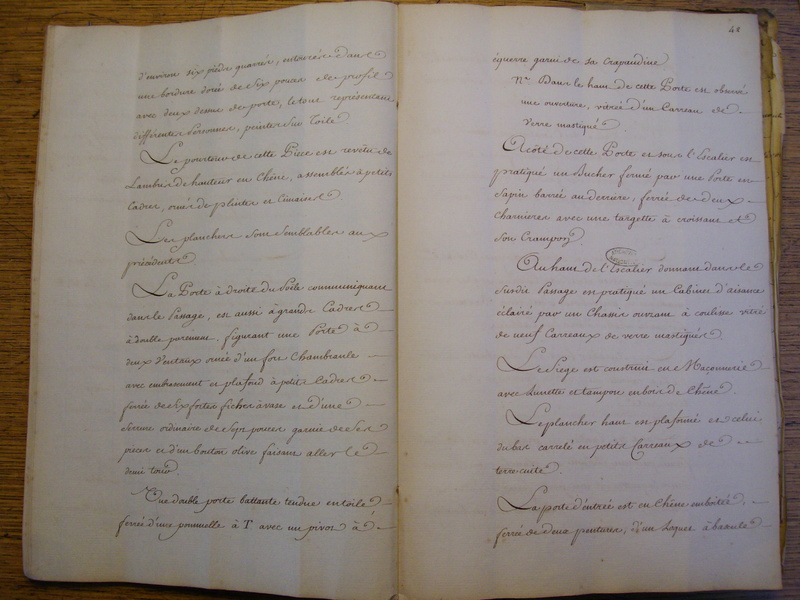 d'environ six pieds quarrés, entourée dans
une bordure dorée de six pouces de profil
avec deux dessus de porte, le tout représentant
differentes Personnes, peintes sur Toile
Le pourtour de cette Piece est revêtu de
Lambris de hauteur en Chêne, assemblés à petits
Cadres, ornés de plintes et Cimaises
Les planchers sont semblables aux
précédents
La Porte à droite du Poile communiquant
dans le Passage, est aussi à grands Cadres
à double parement, figurant une Porte à
deux Ventaux ornée d'un fort Chambranle
avec embrasement et plafond à petits Cadres
ferrée de six fortes fiches à vase et d'une
Serrure ordinaire de sept pouces garnie de ses
pieces et d'un bouton olive faisant aller le
demi tour.
Une double porte battante tendue en toile
ferrée d'une pommelle à T avec un pivot à
48
équerre garni de sa Crapaudine
Nta. Dans le haut de cette Porte est observé
une ouverture, vitrée d'un Carreau de
Verre mastiqué
A côté de cette Porte et sous l'Escalier est
pratiqué un Bucher fermé par une Porte en
Sapin barrée au derriere, ferrée de deux
Charnieres avec une targette à croissant et
son Crampon
Au haut de l'Escalier donnant dans le
susdit Passage est pratiqué un Cabinet d'aisance
éclairé par un Chassis ouvrant à coulisse vitré
de neuf Carreaux de verre mastiqués
Le Siege est construit en Maçonnerie
avec Lunette et tampon en bois de Chêne
Le plancher haut est plafonné et celui
du bas carrelé en petits Carreaux de
terre cuite.
La porte d'entrée est en Chêne emboitée,
ferrée de deux pentures, d'un Loquet à bascule